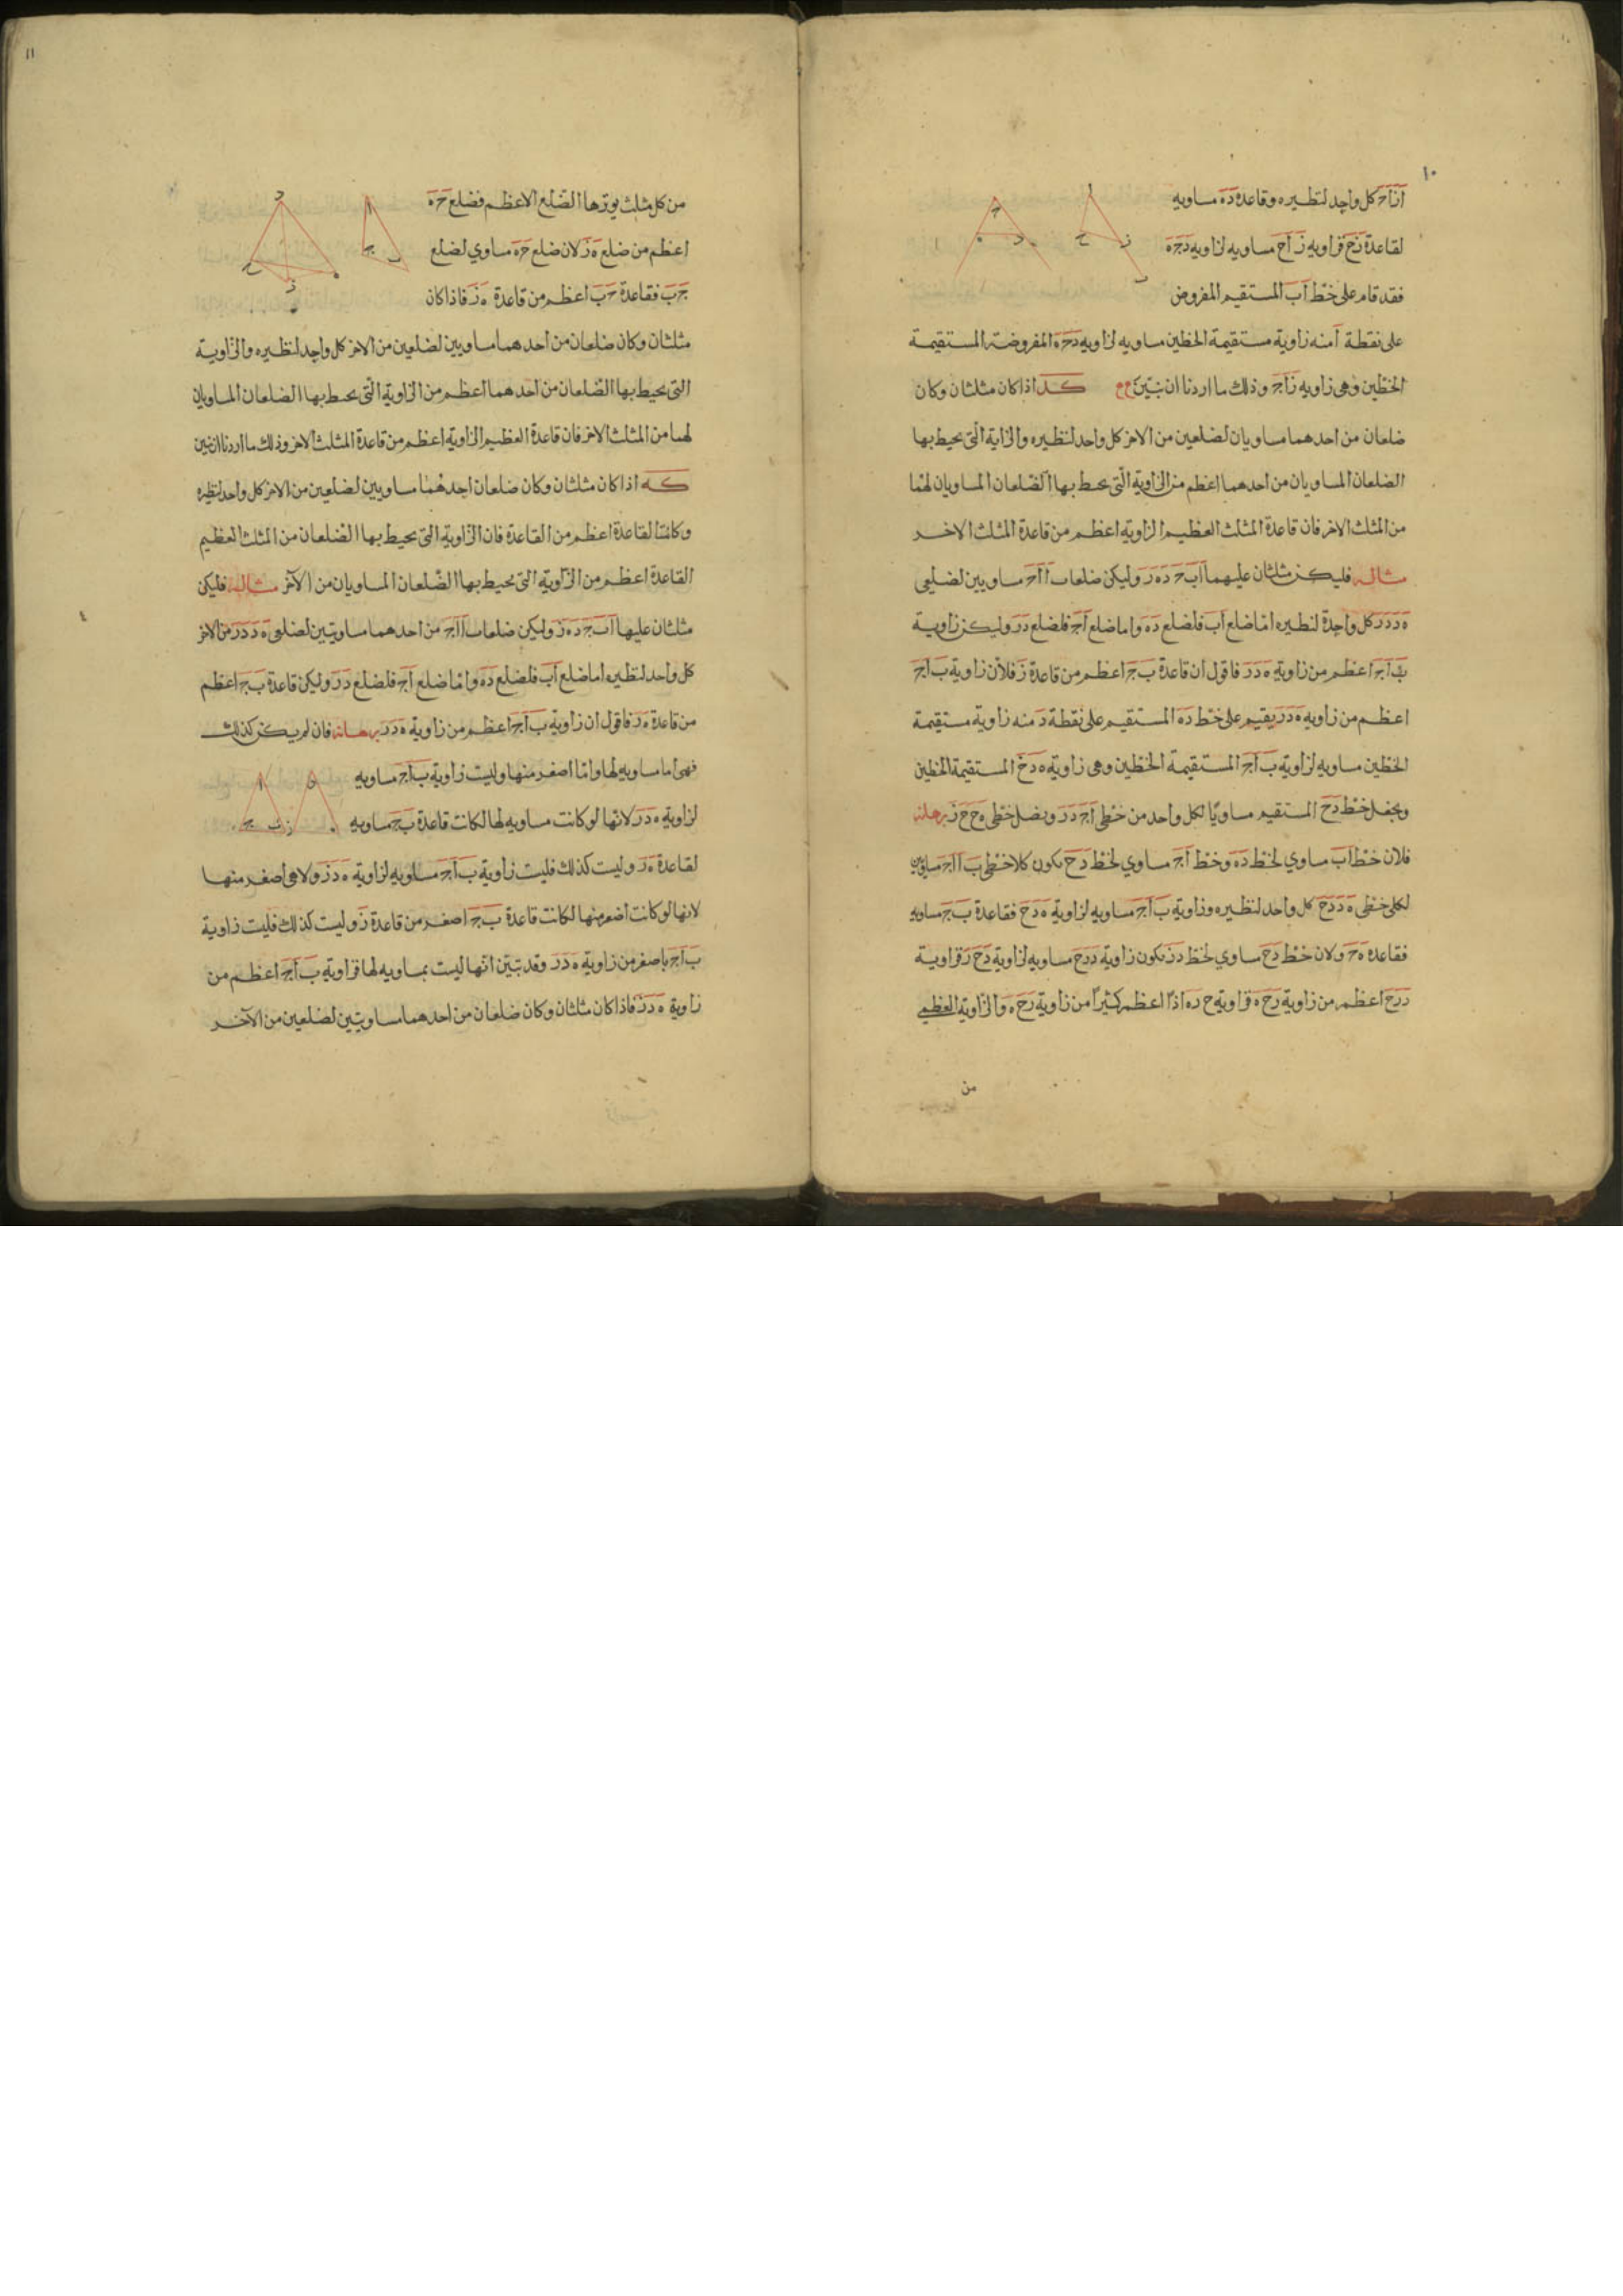 ١٠
اَزَ اَحَ كل واحد لنظيره وقاعدة دَهَ مساويه
لقاعدة زَحَ فزاويه زَ اَحَ مساويه لزاويه دَجَهَ
فقد قام على خط اَبَ المستقيم المفروض
على نقطة اَ منه زاوية مستقيمة الخطين مساويه لزاويه دَجَهَ المفروضة المستقيمة
الخطين وهى زاويه زَاَحَ وذلك ما اردنا ان نبين كد اذا كان مثلثان وكان
ضلعان من احدهما مساويان لضلعين من الاخر كل واحد لنظيره والزاية التى يحيط بها
الضلعان المساويان من احدهما اعظم من الزاوية التى يحيط بها الضلعان المساويان لهما
من المثلث الاخر فان قاعدة المثلث العظيم الزاويه اعظم من قاعدة المثلث الاخر
مثاله فليكن مثلثان عليهما اَبَجَ دَهَزَ وليكن ضلعا بَاَ اَجَ مساويين لضلعى
هَدَ دَزَ كل واحدة لنظيره اما ضلع اَبَ فلضلع دَهَ واما ضلع اَجَ فلضلع دَزَ وليكن زاوية
بَاَجَ اعظم من زاوية هَدَزَ فاقول ان قاعدة بَجَ اعظم من قاعدة زَ فلان زاوية بَاَجَ
اعظم من زاويه هَدَزَ يقيم على خط دَهَ المستقيم على نقطة دَ منه زاوية مستقيمة
الخطين مساويه لزاويه بَاَجَ المستقيمة الخطين وهى زاوية هَدَحَ المستقيمة الخطين
ونجعل خط دَحَ المستقيم مساويًا لكل واحد من خطى اَجَ دَزَ ونصل خطى هَحَ حَزَ برهانه
فلان خط اَبَ مساوي لخط دَهَ وخط اَجَ مساوي لخط دَحَ يكون كلا خطى بَاَ اَجَ مساويين
لكلى خطى هَدَ دَحَ كل واحد لنظيره وزاوية بَاَجَ مساويه لزاوية هَدَحَ فقاعدة بَجَ مساويه
فقاعدة هَحَ ولان خط دَحَ مساوي لخط دَزَ يكون زاوية دَزَحَ مساويه لزاوية دَحَزَ فزاوية
دَزَحَ اعظم من زاوية زَحَهَ فزاوية حَزَهَ اذًا اعظم كثيرًا من زاوية زَحَهَ والزاوية العظمى
من
١١
من كل مثلث يوترها الضلع الاعظم فضلع حَهَ
اعظم من ضلع هَزَ لان ضلع حَهَ مساوي لضلع
جَبَ فقاعدة جَبَ اعظم من قاعدة هَزَ فاذا كان
مثلثان وكان ضلعان من احدهما مساويين لضلعين من الاخر كل واحد لنظيره والزاوية
التى يحيط بها الضلعان من احدهما اعظم من الزاوية التى يحيط بها الضلعان المساويان
لهما من المثلث الاخر فان قاعدة العظيم الزاوية اعظم من قاعدة المثلث الاخر وذلك ما اردنا ان نبين
كه اذا كان مثلثان وكان ضلعان احدهما مساويين لضلعين من الاخر كل واحد لنظيره
وكانت القاعدة اعظم من القاعدة فان الزاوية التى يحيط بها الضلعان من المثلث العظيم
القاعدة اعظم من الزاوية التى يحيط بها الضلعان المساويان من الآخر مثاله فليكن
مثلثان عليها اَبَجَ دَهَزَ وليكن ضلعا بَاَ اَجَ من احدهما مساويين لضلعى هَدَ دَزَ من الاخر
كل واحد لنظيره اما ضلع اَبَ فلضلع دَهَ واما ضلع اَجَ فلضلع دَزَ وليكن قاعدة بَجَ اعظم
من قاعدة هَزَ فاقول ان زاوية بَاَجَ اعظم من زاوية هَدَزَ برهانه فان لم يكن كذلك
فهى اما مساويه لها واما اصغر منها وليست زاوية بَاَجَ مساويه
لزاوية هَدَزَ لانها لو كانت مساويه لها لكانت قاعدة بَجَ مساويه
لقاعدة هَزَ وليست كذلك فليست زاوية بَاَجَ مساويه لزاوية هَدَزَ ولا هى اصغر منها
لانها لو كانت اصغر منها لكانت قاعدة بَجَ اصغر من قاعدة زَ وليست كذلك فليست زاوية
بَاَجَ باصغر من زاوية هَدَزَ وقد تبين انها ليست بمساويه لها فزاوية بَاَجَ اعظم من
زاوية هَدَزَ فاذا كان مثلثان وكان ضلعان من احدهما مساويين لضلعين من الآخر